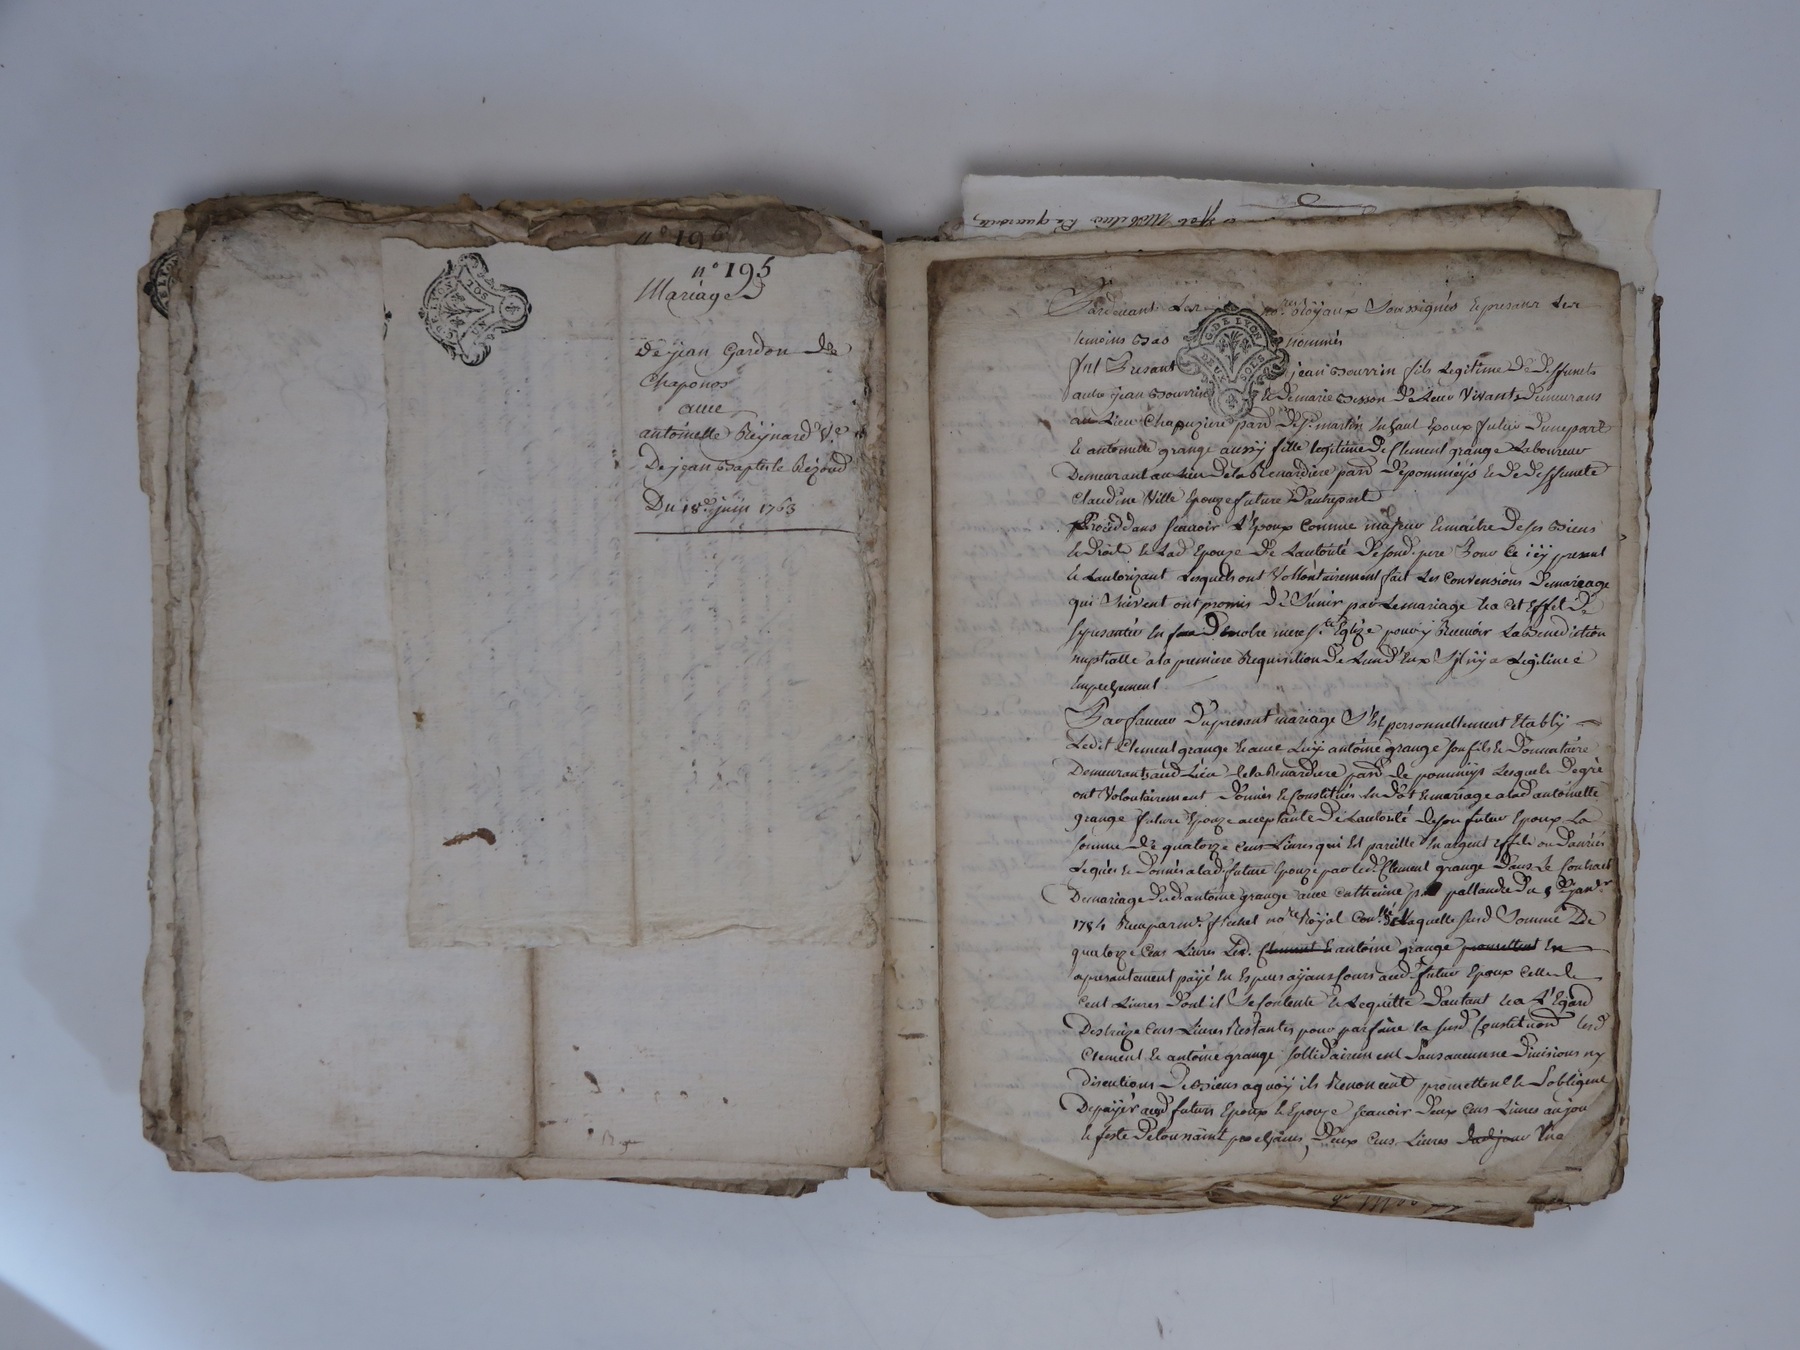 n° 196
n° 195
Mariage
De jean Gardon de
Chaponos
avec
antoinette Reÿnard Vve
De jean Baptiste
Du 18e juin 1763
Pardevant Les nres Roÿaux Soussignés et presant Les
temoins Bas nommés
fut Presant jean Bourrin fils Legitime De deffunts
autre jean Bourrin et de marie Besson De Leur Vivants Demeurans
au Lieu Chapuziere parr De St martin En haut Epoux futur D'une part
Et antoinette grange aussÿ fille legitime De Clement grange Laboureur
Demeurant au Lieu De la Renardiere parr De pommeÿs et de Deffuncte
Claudine Ville Epouze future D'autre part
Proced dans scavoir L'Epoux Comme majeur et maitre De ses Biens
et Droits et Lad Epouze De L'autorité De sond. pere Pour ce icÿ presant
et L'autorizant Lesquels ont Vollontairement fait Les Convensions De mariage
qui Suivent ont promis De S'unir par Le mariage et a cet Effet De
se presanter En D notre mere Ste Eglize pour ÿ Recevoir La Benediction
nuptialle a la premiere Requisition De L'un D'Eux S'il n'ÿ a Legitime
Empechement
Par faveur Du presant mariage S'Est personnellement Etablÿ
Ledit Clement grange et avec Luÿ antoine grange son fils et Donnataire
Demeurants aud Lieu de la Renardiere parr de pommeÿs Lesquels De gré
ont Volontairement Donnés et Constitués En Dot et mariage a lad antoinette
grange future Epouze acceptante De L'autorité De son futur Epoux La
somme De quatorze Cens Livres qui Est pareille En argent Effets ou Danrées
Leguée et Donnée a lad future Epouze par led Clement grange Dans Le Contrat
De mariage Dud antoine grange avec Catherine pallandre Du 8 De janvr
1784 Recu par me. fichet nore Roÿal Laquelle susd Somme De
quatorze Cens Livres Led. Clement et antoine grange promettent En
a presantement païé En Especes aÿans Cours aud. futur Epoux Celle de
Cent Livres Dont il Se Contente et Le quitte D'autant et a L'Egard
Des treize Cens Livres Restantes pour parfaire la susd Constitution Lesd
Clement et antoine grange sollidairement Sans aucunne Divisions nÿ
Discutions De Biens a quoÿ ils Renoncent promettent et S'obligent
De païer aud futurs Epoux et Epouze scavoir Deux Cens Livres au jour
et feste De toussaint prochains, Deux Cens Livres Dud jour